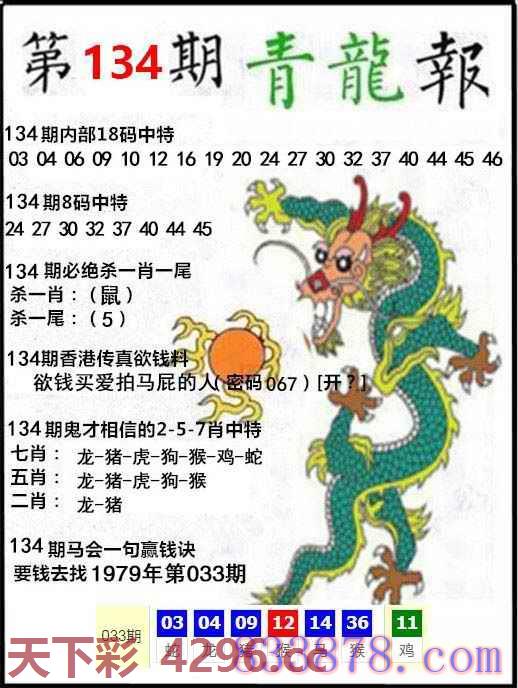 第134期青龍報
134期内部18码中特
03 04 06 09 10 12 16 19 20 24 27 30 32 37 40 44 45 46
134期8码中特
24 27 30 32 37 40 44 45
134期必绝杀一肖一尾
杀一肖：（鼠）
杀一尾：（5）
134期香港传真欲钱料
欲钱买爱拍马屁的人（密码067）[开？]
134期鬼才相信的2-5-7肖中特
七肖： 龙-猪-虎-狗-猴-鸡-蛇
五肖： 龙-猪-虎-狗-猴
二肖： 龙-猪
134期马会一句赢钱诀
要钱去找1979年第033期
033期 03 04 09 12 14 36 11
蛇 龙 猪 猴 马 猴 鸡
天下彩 4296.cc
633878.com